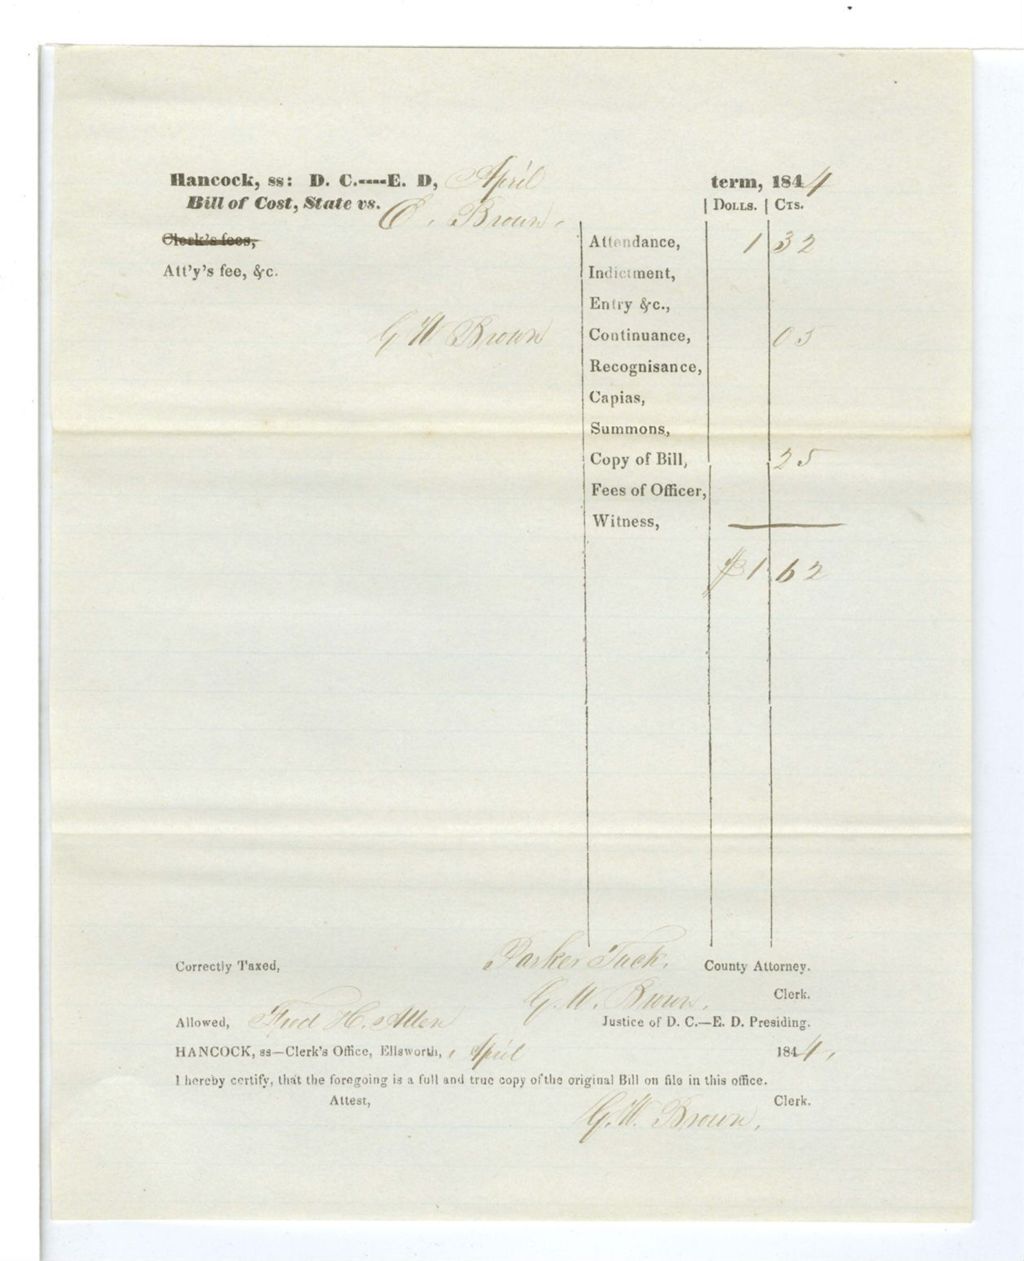 Hancock, ss: D. C.----E. D, April term, 1844
Bill of Cost, State vs. E. Brown.
| Dolls. | Cts.
Clerk's fees,
Attendance, 1 32
Att'y's fee, &c.
Indictment,
Entry &c.,
G W Brown
Continuance, 05
Recognisance,
Capias,
Summons,
Copy of Bill, 25
Fees of Officer,
Witness,
$1 62
Correctly Taxed, Parker Tuck. County Attorney.
G. W. Brown. Clerk.
Allowed, Fred H. Allen Justice of D. C.—E. D. Presiding.
HANCOCK, ss—Clerk's Office, Ellsworth, April 1844.
I hereby certify, that the foregoing is a full and true copy of the original Bill on file in this office.
Attest, G. W. Brown. Clerk.